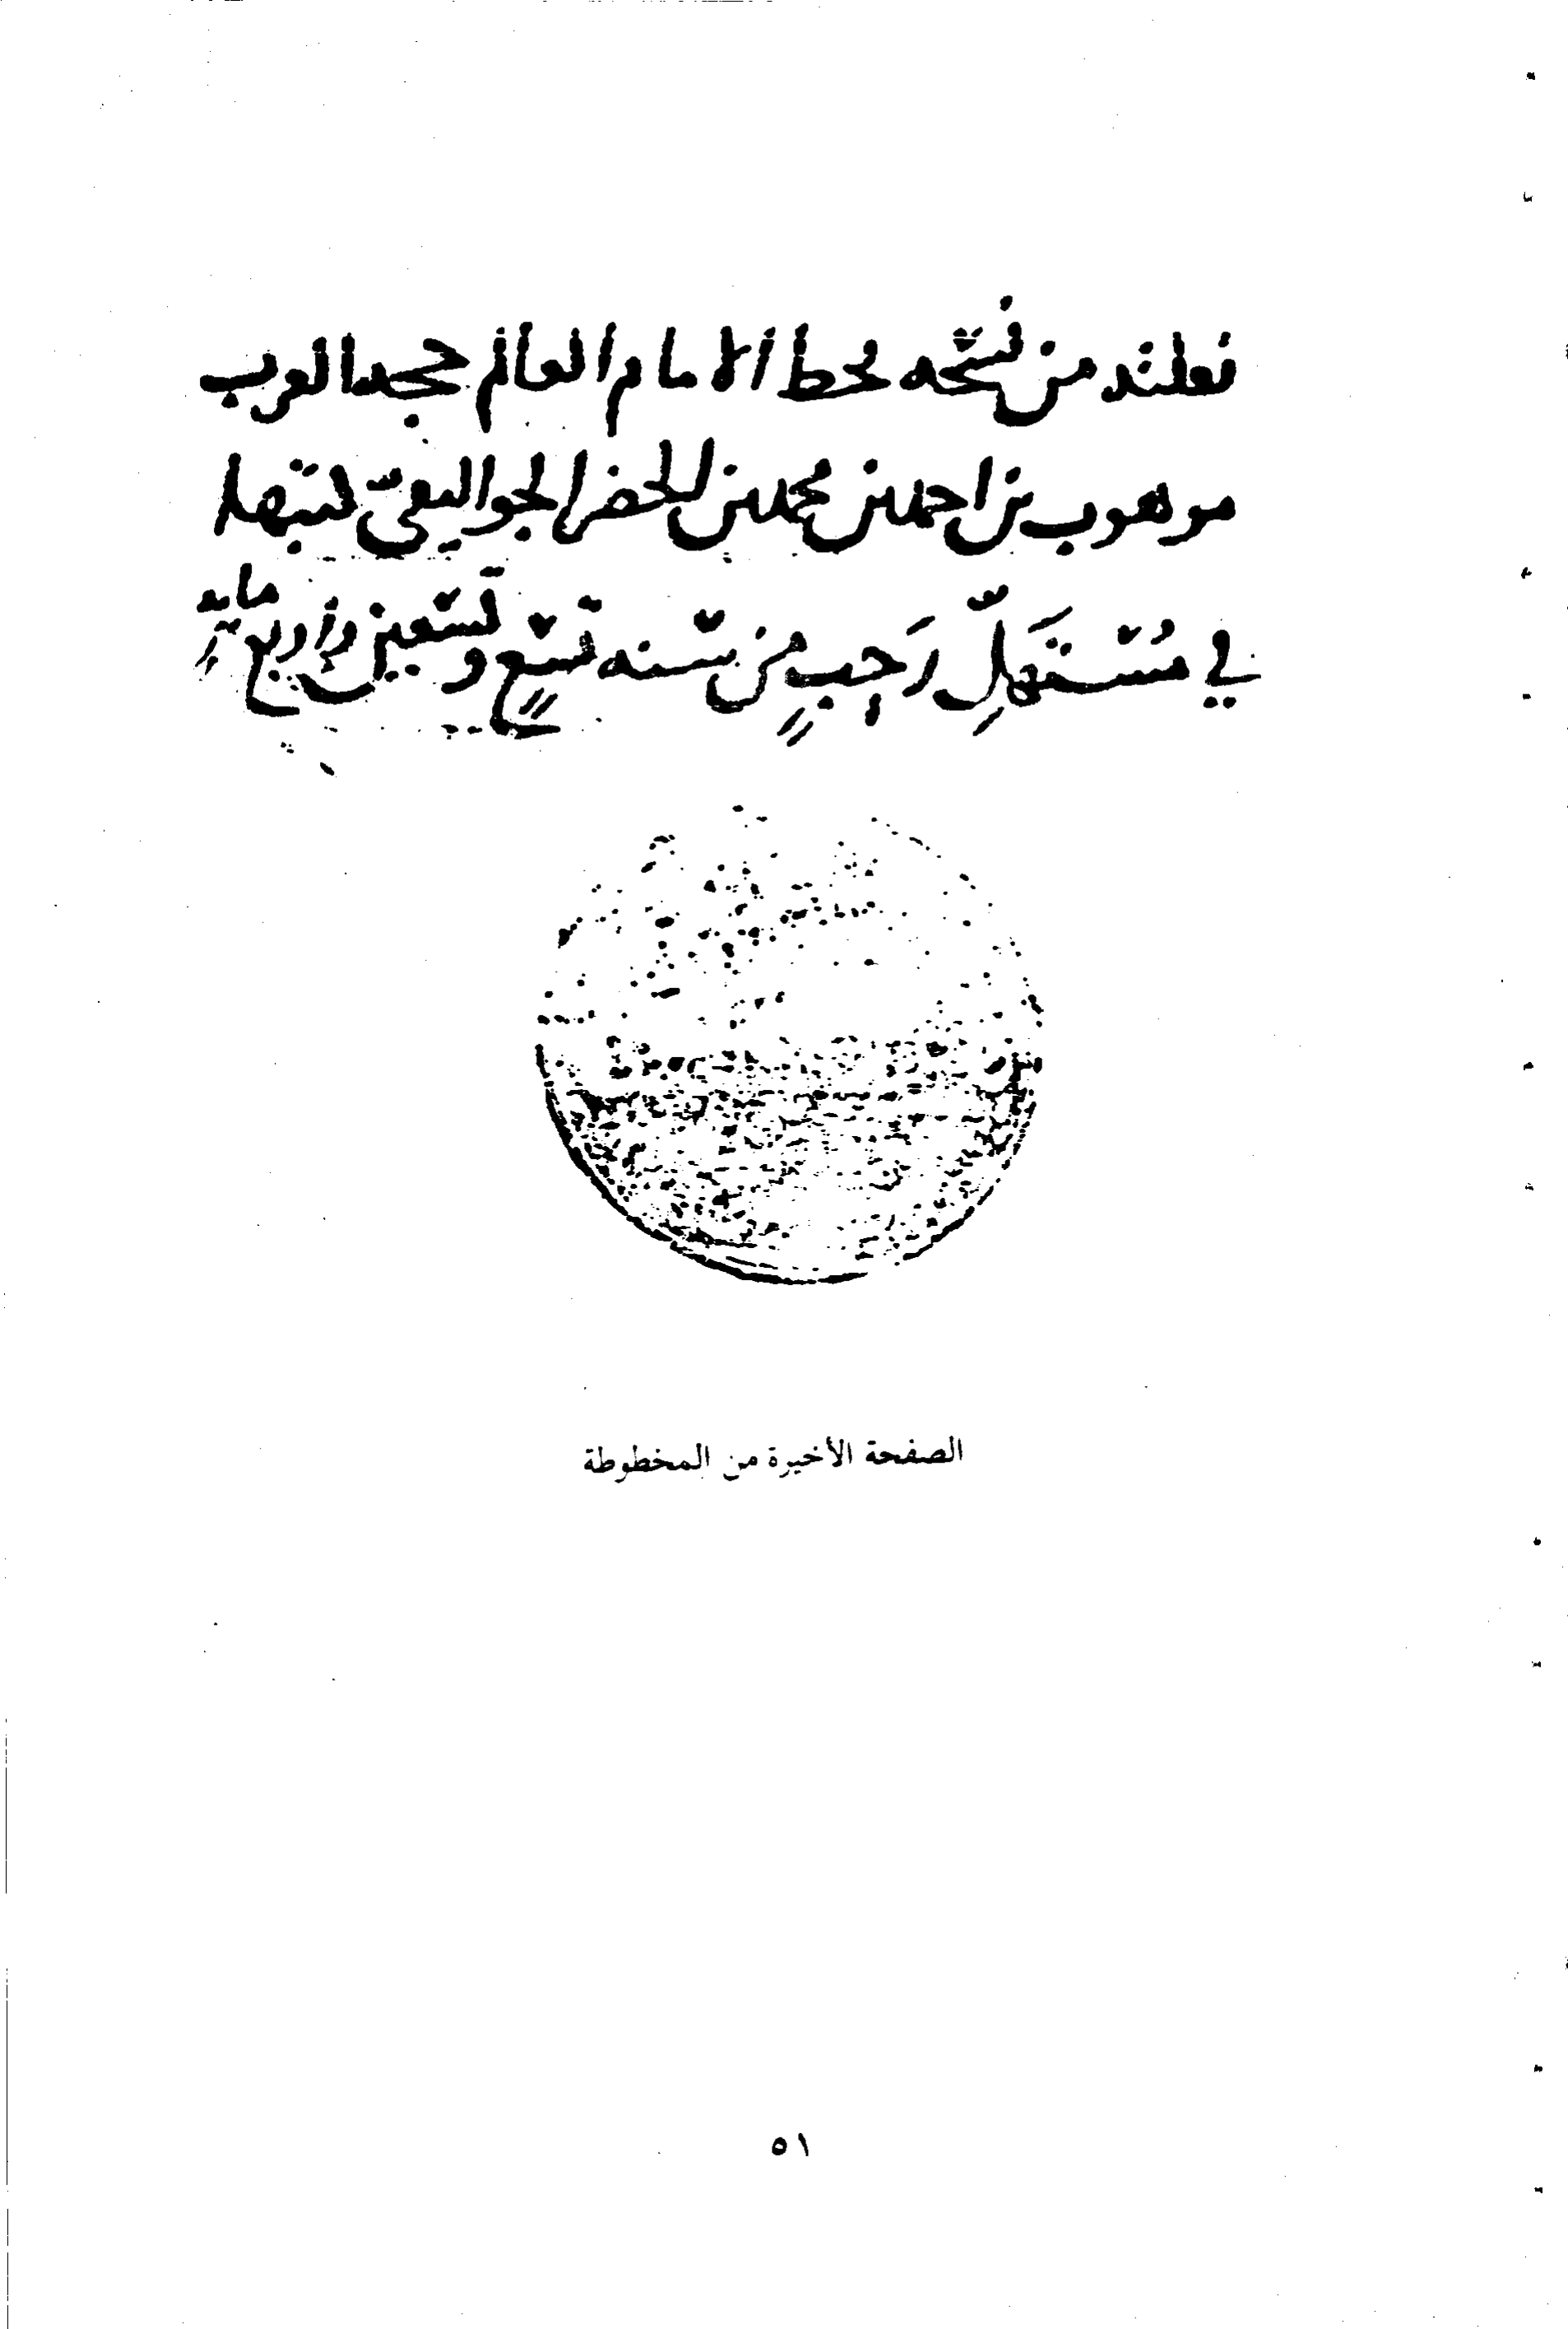 نقلته من نسخه بخط الامام العالم حجه العرب
موهوب بن احمد بن محمد بن الخضر الجواليقيّ كتبها
في مُسْتَهَلِّ رَجبٍ من سنه تسعٍ وتسعين وأربع مايةٍ
الصفحة الأخيرة من المخطوطة
٥١